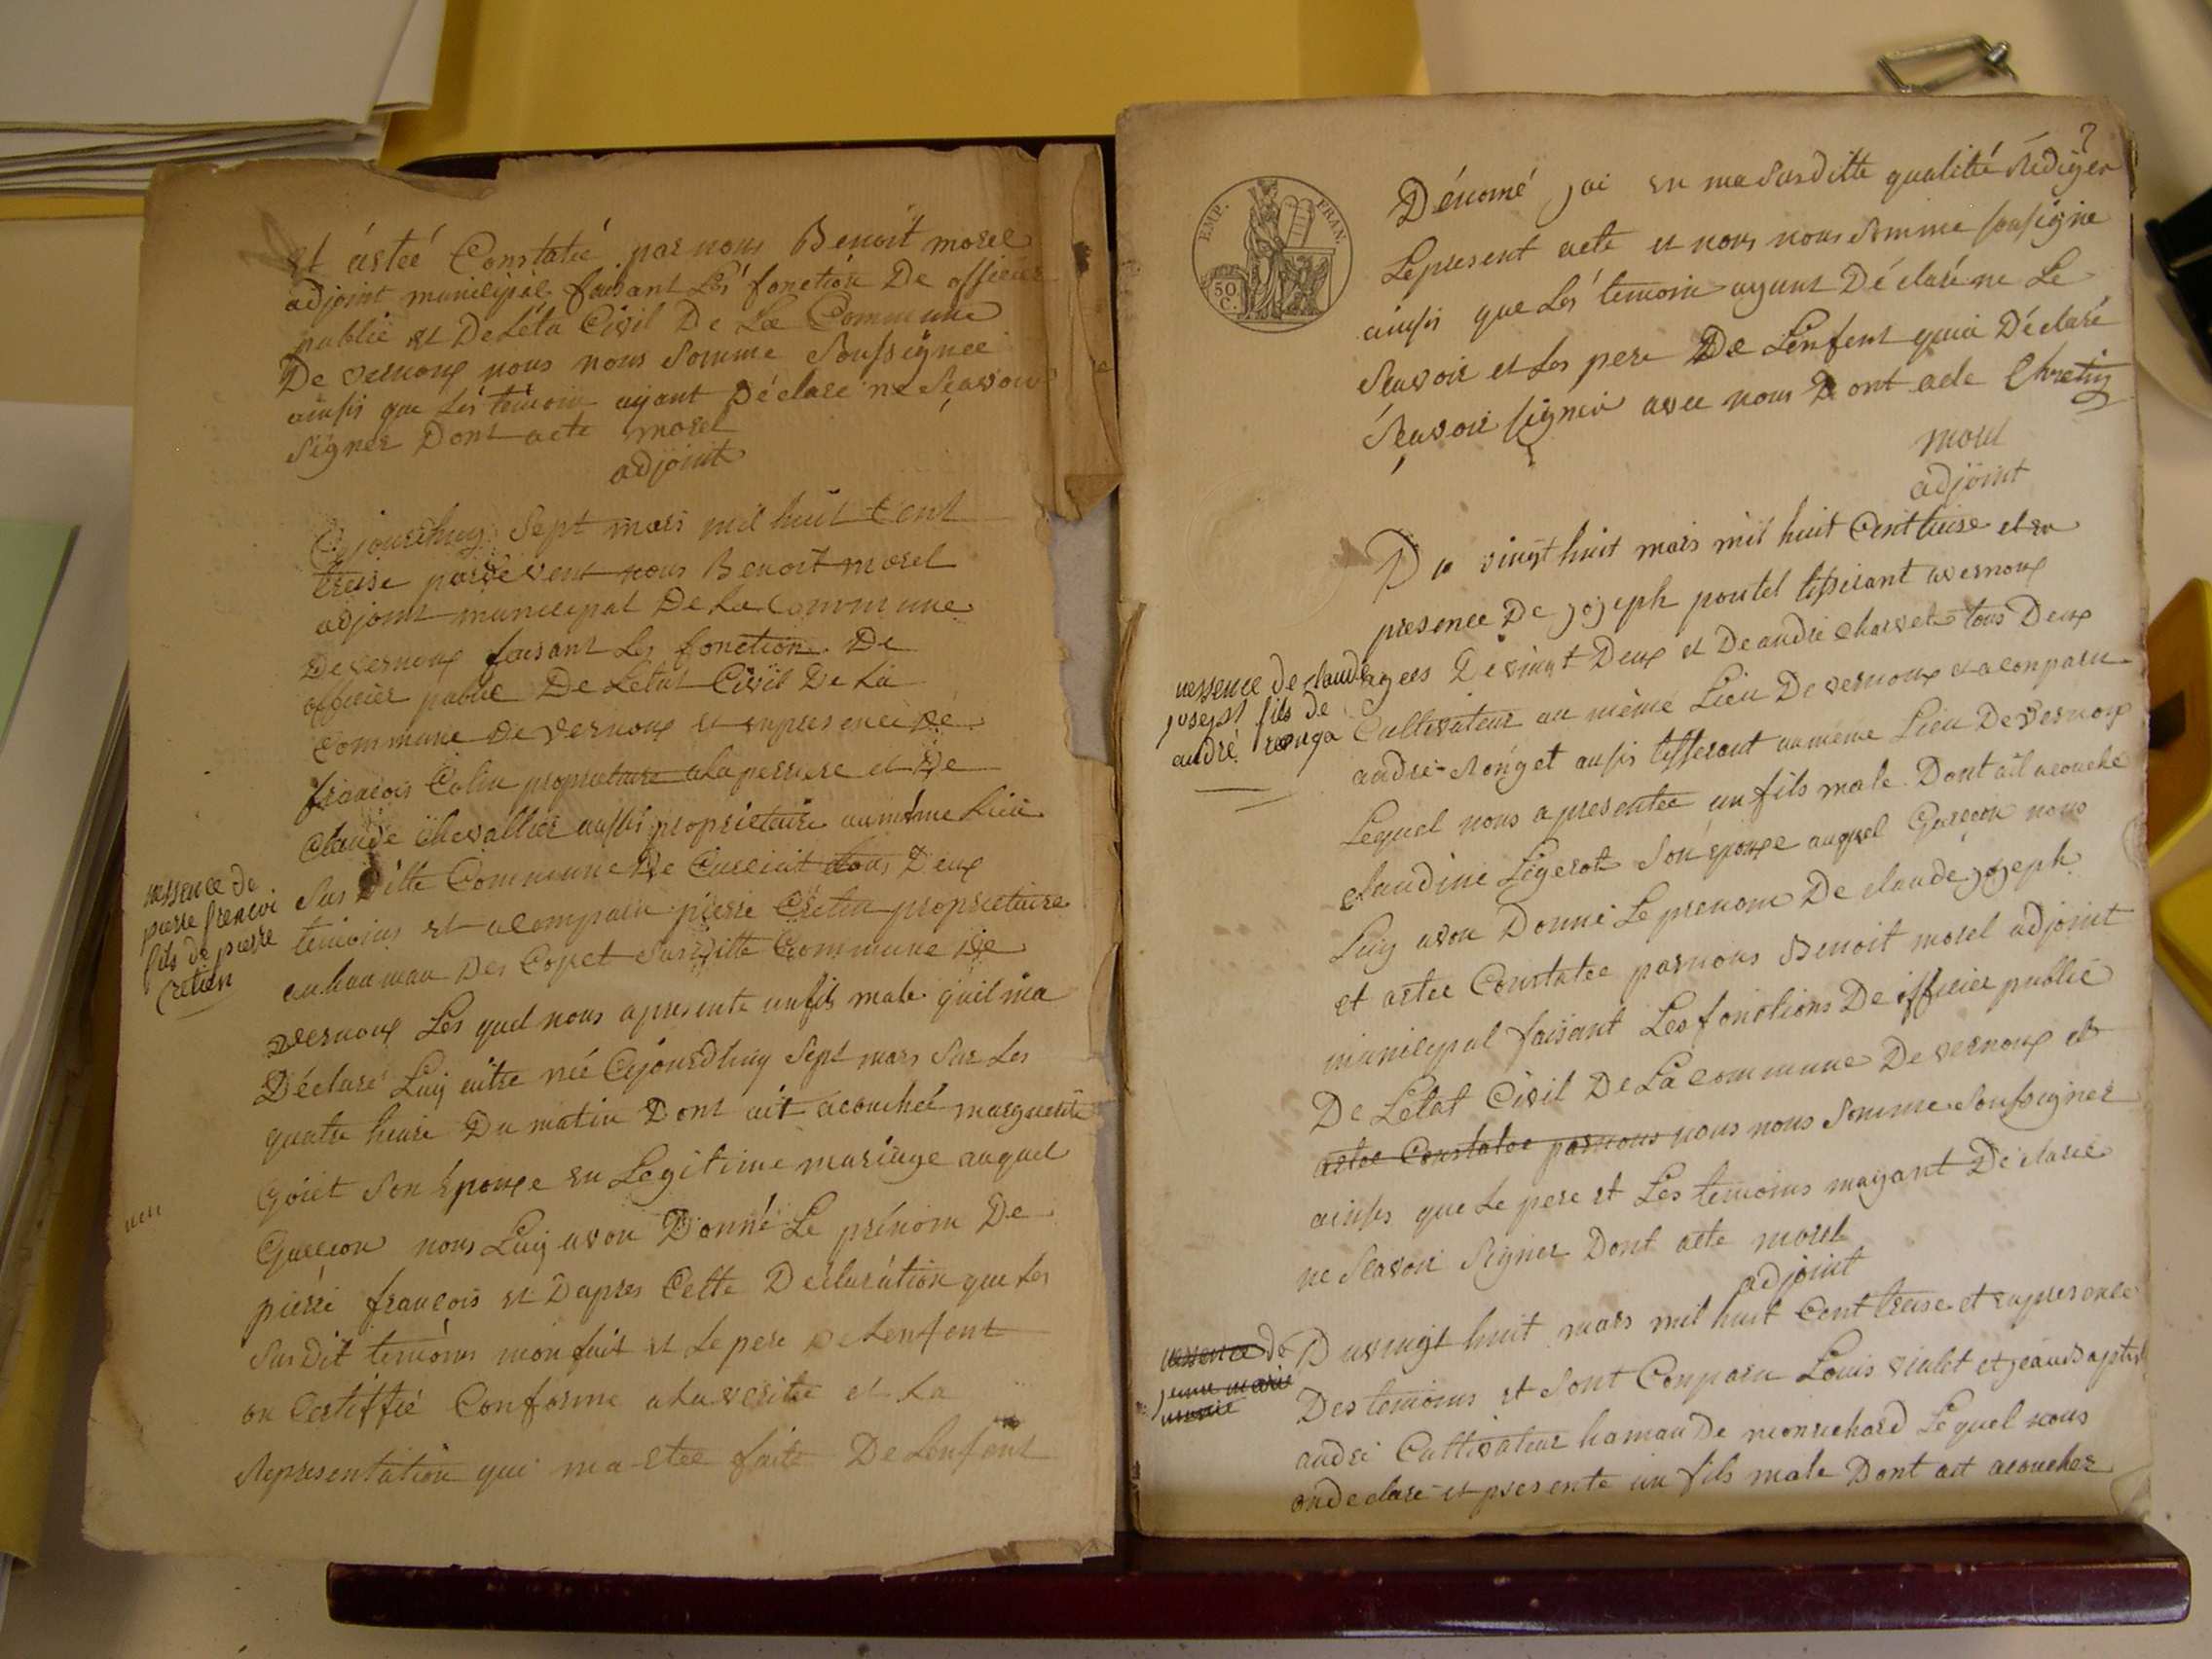 et astée Constatié par nous Benoit morel
adjoint municipal faisant Les fonction De officier
public et De Léta Civil De La Commune
De vernoux nous nous Somme Soussignee
ainsis que Les temoin aÿant Déclaré ne Seavoir
Signer Dont acte morel
adjoint
Cejourdhuy Sept mars mil huit Cent
treise pardevent nous Benoit morel
adjoint municipal De La Commune
De vernoux faisant Les fonction De
officier public De Létat Civil De La
Commune De vernoux et enpresence De
francois Colin proprietaire ala perriere et De
Claude Chevallier aussis proprietaire au même Lieu
Sus Ditte Commune De Cuiciat tous Deux
nessence de
pierre francoi
fils de pierre
Cretien
temoins et acomparu pierre Cretin proprietaire
au hauman Des Copet Susditte Commune De
vernoux Les quel nous apresente unfils male quil ma
Déclaré Luÿ aitre née Cejourdhuy Sept mars Sur Les
quatre heure Du matin Dont ait acouchée marguerite
Goiet Son Epouxe en Legitime mariage auquel
Garcon nous Luÿ avon Donné Le prénom De
pierre francois et Dapres Cette Declarátion que Les
Susdit temóins mon fait et Le pere De Lenfent
on Certiffié Conforme a La verite et La
Representation qui ma Etee faite De Lenfent
EMP. FRAN.
50
C.
2
Dénomé jai en ma Susditte qualitié Rédiger
Lepresent acte et nous nous Somme Sousigne
ainsis que Les temoin ayant Déclaré ne Le
Seavoir et Les pere De Lenfent quia Déclaré
Seavoir signer avec nous Dont acte Chretin
morel
adjoint
Du vingt huit mars mil huit Cent treise et en
presence De joseph poutel tisserant a vernoux
agees De vingt Deux et De andré Charvet tous Deux
nessence de claude
josept fils de
andré ronga
Cultivateur au même Lieu De vernoux et a conparu
andre Rónget ausis tisserant au même Lieu De vernoux
Lequel nous a presentee un fils male Dont ait acouche
claudine Ligerot Son epouxe auquel Garcon nous
Luÿ avon Donné Le prenom De claude joseph
et astee Constatee parnous Benoit morel adjoint
municipal faisant Les fonctions De officier public
De Létat Civil De La commune De vernoux et
astee Constatee parnous nous nous Somme Soussigner
ainsis que Le pere et Les temoins mayant Déclaré
ne Seavoir Signer Dont acte morel
adjoint
nessence de
jeanne marie
Du vingt huit mars mil huit Cent treise et enpresence
Des temoins et Sont Conparu Louis vialet et jeanbaptiste
andré Cultivateur haman De monrichard Lequel nous
on declaré et presente un fils male Dont ait acoucher